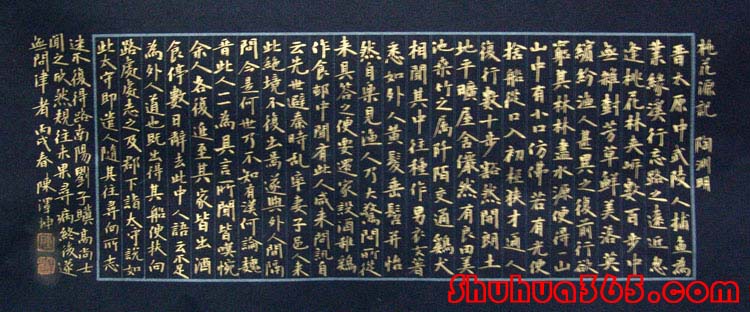 桃花源記 陶淵明
晉太原中武陵人捕魚為
業緣溪行忘路之遠近忽
逢桃花林夾岸數百步中
無雜樹芳草鮮美落英
繽紛漁人甚異之復前行欲
窮其林林盡水源便得一山
山中有小口彷彿若有光便
捨船從口入初極狹才通人
復行數十步豁然開朗土
地平曠屋舍儼然有良田美
池桑竹之屬阡陌交通鷄犬
相聞其中往種作男女衣著
悉如外人黃髮垂髫并怡
然自樂見漁人乃大驚問所從
来具答之便要還家設酒殺鷄
作食邨中聞有此人咸来問訊自
云先世避秦時亂率妻子邑人来
此絕境不復出焉遂與外人間隔
問今是何世乃不知有漢何論魏
晉此人一一為具言所聞皆嘆惋
余人各復延至其家皆出酒
食停數日辭去此中人語云不足
為外人道也既出得其船便扶向
路處處志之及郡下詣太守説如
此太守即遣人隨其往尋向所志
迷不復得路南陽劉子驥高尚士
聞之欣然規往未果尋病終後遂
無問津者 丙戌春 陳澤坤
Shuhua365.com